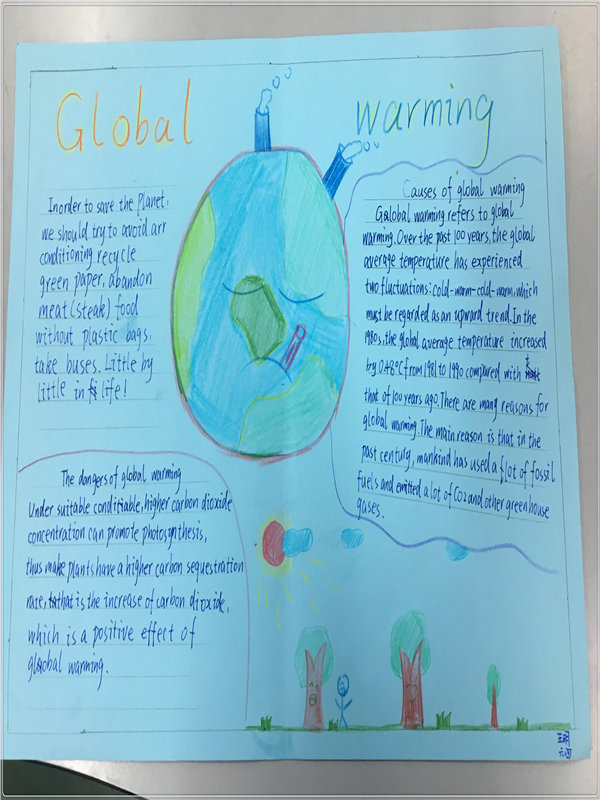 Global warming
Inorder to save the planet,
we should try to avoid arr
conditioning recycle
green paper, abandon
meat (steak) food
without plastic bags,
take buses. Little by
little in life!
Causes of global warming
Galobal warming refers to global
warming. Over the past 100 years, the global
average temperature has experienced
two fluctuations: cold-warm-cold-warm, which
must be regarded as an upward trend. In the
1980s, the global average temperature increased
by 0.48°C from 1981 to 1990 compared with
that of 100 years ago. There are many reasons for
global warming. The main reason is that in the
past century, mankind has used a lot of fossil
fuels and emitted a lot of Co2 and other greenhouse
gases.
The dangers of global warming
Under suitable conditiable, higher carbon dioxide
concentration can promote photosynthesis,
thus make plants have a higher carbon sequestration
rate, that is the increase of carbon dioxide,
which is a positive effect of
glaobal warming.